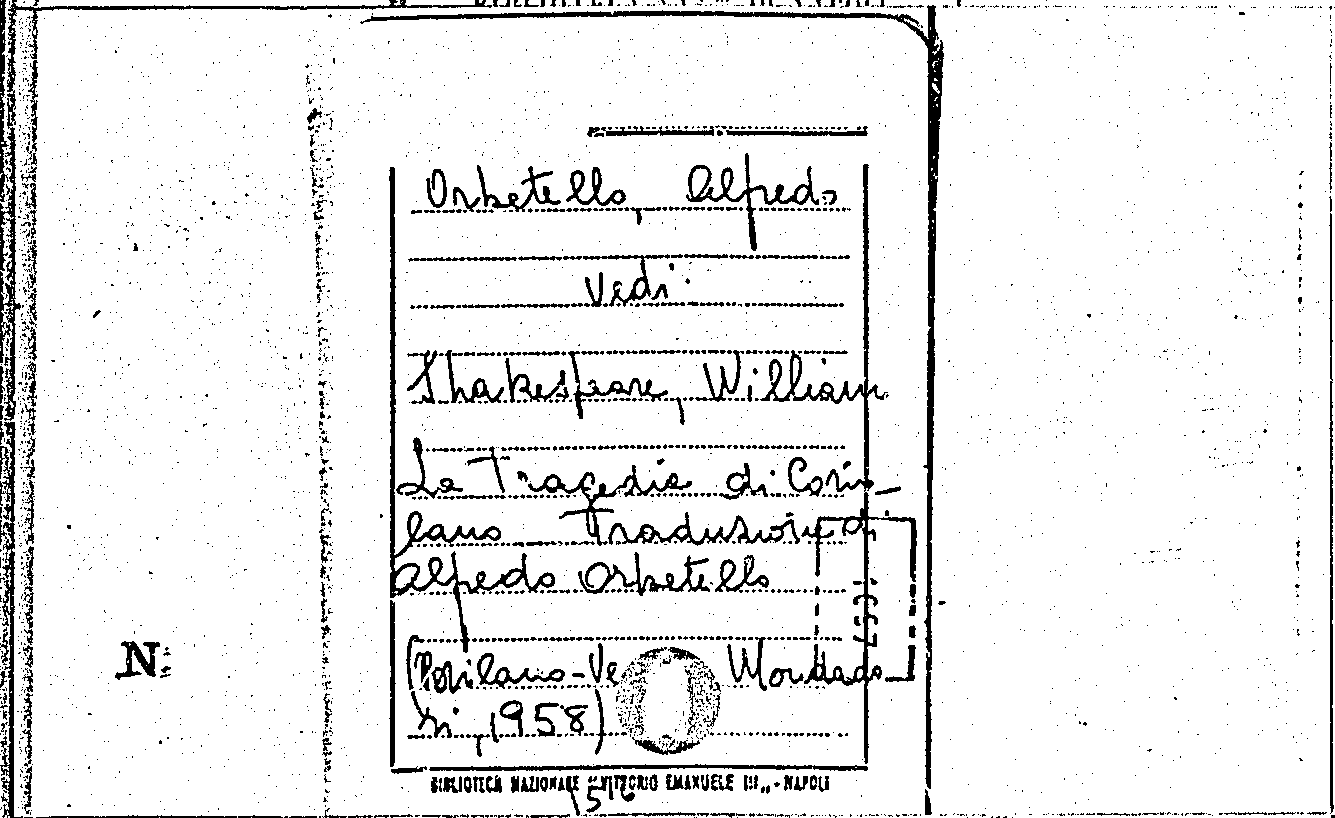 Orbetello, Alfredo
Vedi:
Shakespeare, William
La Tragedia di Corio_
lano _ Traduzione di
Alfredo Orbetello
(Milano-Ve Mondado_
ri, 1958)
N:
BIBLIOTECA NAZIONALE "VITTORIO EMANUELE III„ - NAPOLI